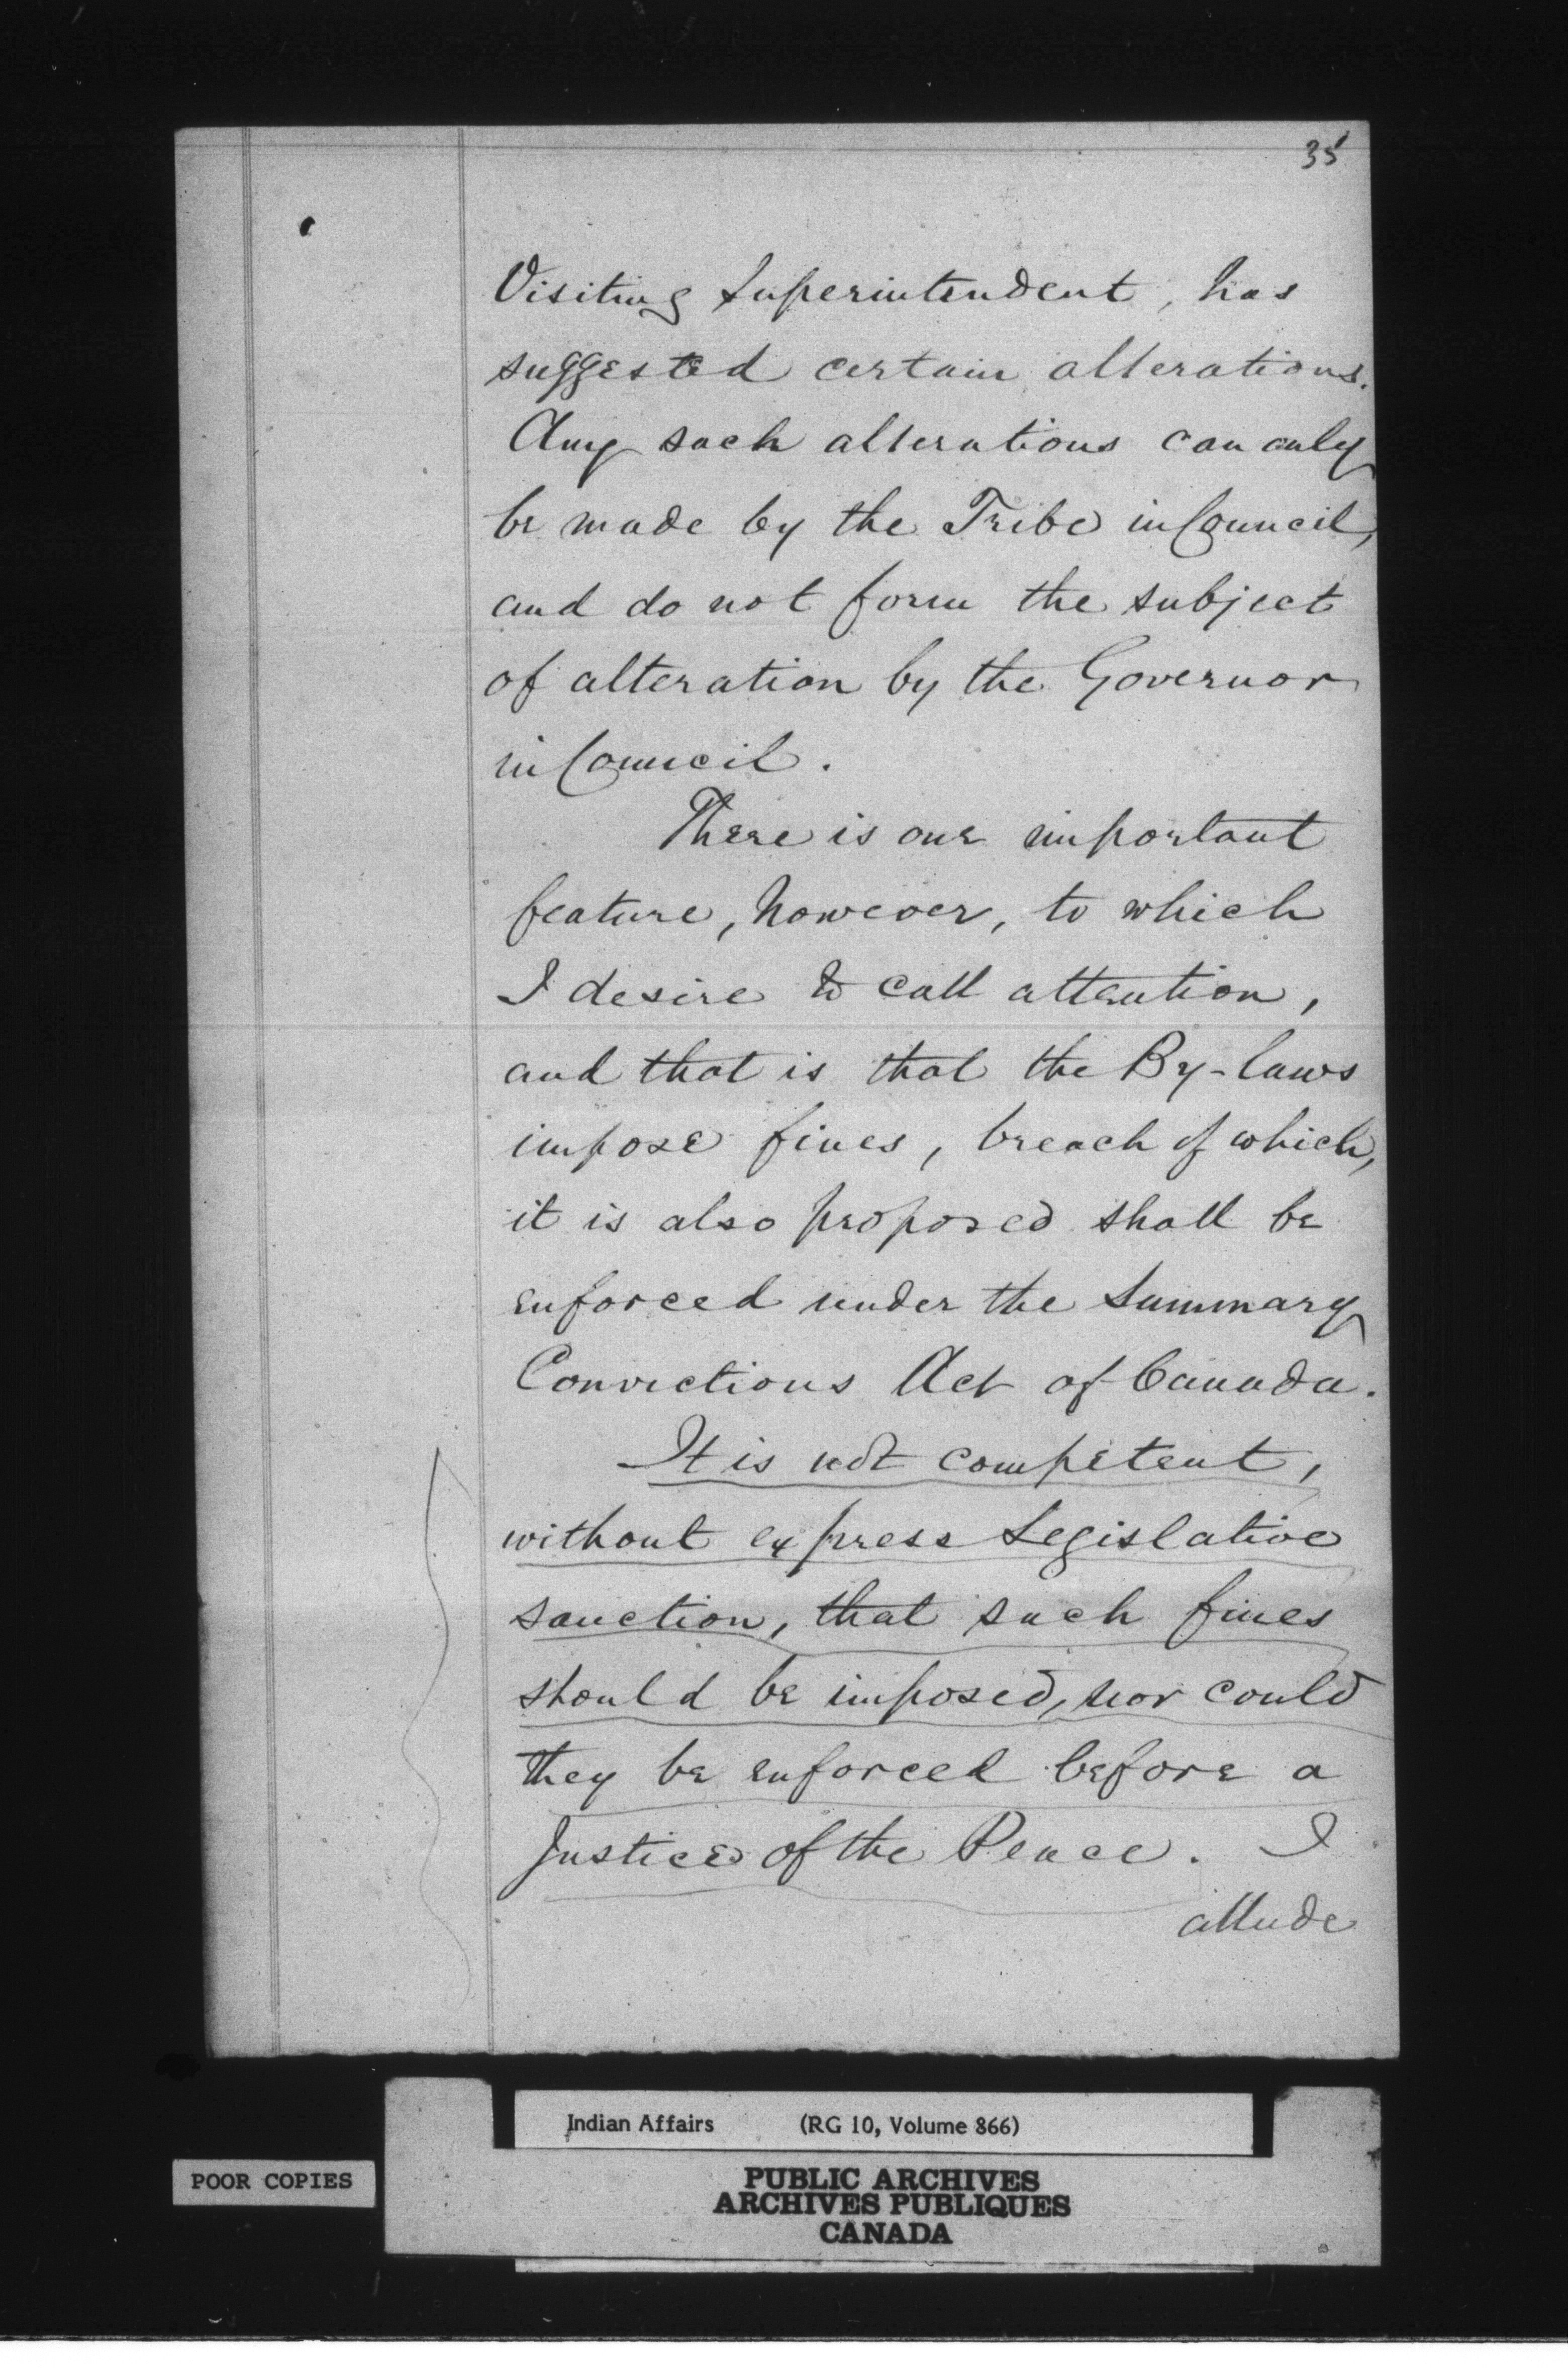 35
Visiting Superintendent, has
suggested certain alterations.
Any such alterations can only
be made by the Tribe in Council,
and do not form the subject
of alteration by the Governor
in Council.
There is one important
feature, however, to which
I desire to call attention,
and that is that the By-laws
impose fines, breach of which,
it is also proposed shall be
enforced under the Summary
Convictions Act of Canada.
It is not competent,
without express Legislative
sanction, that such fines
should be imposed, nor could
they be enforced before a
Justice of the Peace. I
allude
Indian Affairs (RG 10, Volume 866)
POOR COPIES
PUBLIC ARCHIVES
ARCHIVES PUBLIQUES
CANADA